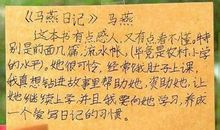 《马燕日记》 马燕
这本书有点感人,又有点看不懂。特
别是前面几篇,流水帐。(毕竟是农村小学
的水平)。她很可怜,经常饿肚子上课,
我真想钻进故事里帮助她,资助她,让
她继续上学,并且我要向她学习,养成
一个爱写日记的习惯。